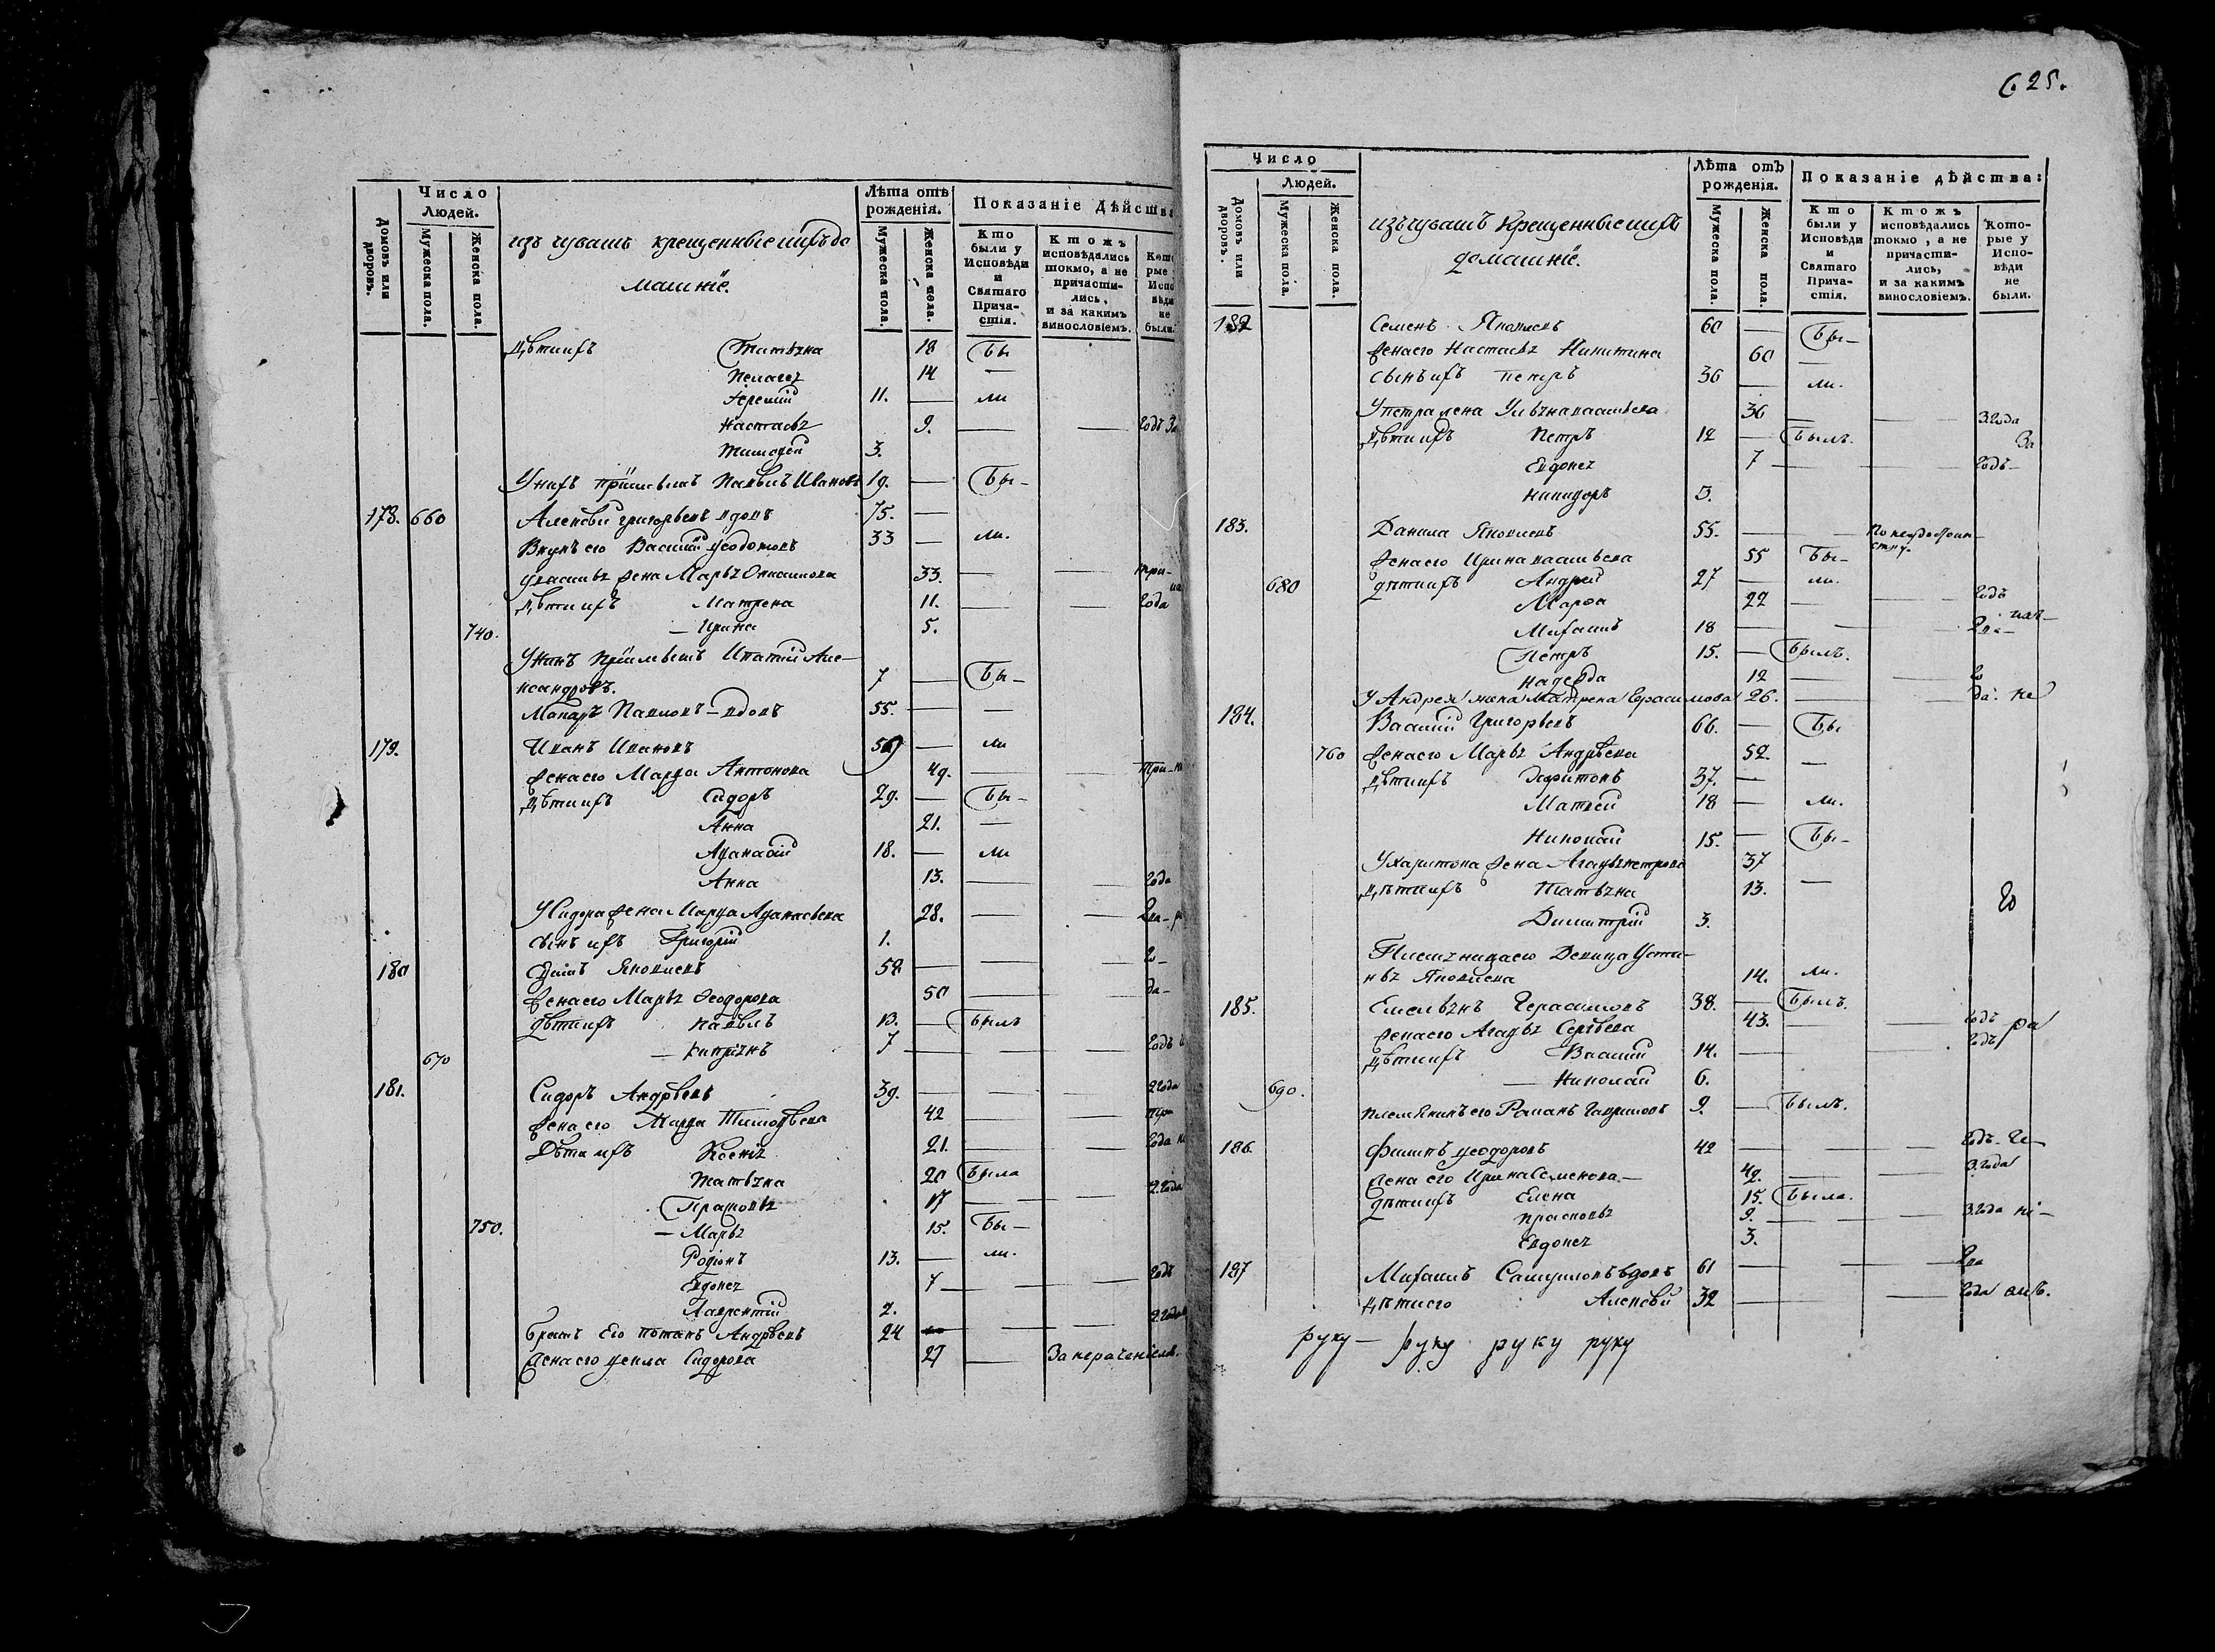 С. 25.
Число
Людей.
Домовъ или дворовъ.
Мужеска пола.
Женска пола.
изъ чувашъ крещенные ихъ до
машніе.
Лѣта отъ рожденія.
Мужеска пола.
Женска пола.
Показаніе Дѣйства
Кто были у Исповѣди и Святаго Причастія.
Ктожъ исповѣдались токмо, а не причастились, и за какимъ винословіемъ.
дѣти ихъ Татьяна 18 бы
Пелагея 14 —
Іеремій 11. — ли
Настасья 9. — — годъ За
Тимофей 3.
У нихъ пріимышъ Павелъ Ивановъ 19. — бы-
178. 660 Алексѣй Григорьевъ вдовъ 75. —
Внукъ его Василій Ѳеодотовъ 33 — ли.
жена Марья 33. — — три-
дѣти ихъ Матрена 11. — — года
740. — Ирина 5.
Ипатій Але-
ксандровъ. 7 — бы-
Макаръ Павловъ - вдовъ 55. — —
179. Иванъ Ивановъ 50 — ли
жена его Марфа Антонова 49. — — три-
дѣти ихъ Сидоръ 29. — бы-
Анна 21. —
Афанасій 18. — ли
Анна 13. — — года
У Сидора жена Марфа Афанасьева 28. — — два-
сынъ ихъ Григорій 1.
180 Яковлевъ 52 — — го-
жена его Марья Ѳеодорова 50 — — да-
дѣти ихъ Павелъ 13. — былъ
— Кипріянъ 7 — — — годъ
670
181. Сидоръ Андрѣевъ 39. — — — 2 года
жена его Марфа Тимофѣева 42 — — три
Дѣти ихъ Ксенія 21. — — года
Татьяна 20 была
Прасковья 17 — — 2. года
750. — Марья 15. бы-
Родіонъ 13. — ли.
Евдокея 7 — — годъ
Лаврентій 2.
братъ его Потапъ Андрѣевъ 24 — — — 2 года
жена его Ѳекла Сидорова 27 —
Число
Людей.
Домовъ или дворовъ.
Мужеска пола.
Женска пола.
изъ чувашъ крещенные ихъ
домашніе.
Лѣта отъ рожденія.
Мужеска пола.
Женска пола.
Показаніе дѣйства:
Кто были у Исповѣди и Святаго Причастія.
Ктожъ исповѣдались токмо, а не причастились, и за какимъ винословіемъ.
Которые у Исповѣди не были.
182 Семенъ Яковлевъ 60 — бы-
жена его Настасья Никитина 60 —
сынъ ихъ Петръ 36 — ли.
У Петра жена Ульяна Васильева 36 — — 3. года
дѣти ихъ Петръ 12 — былъ. За
Евдокея 7 — — годъ-
Никифоръ 3.
183. Данила Яковлевъ 55. — —
жена его Ирина Васильева 55 бы-
680 дѣти ихъ Андрей 27 — ли.
Марфа 22 — — годъ
Михаилъ 18 — — — два-
Петръ 15. — былъ.
Надежда 12 — — го
У Андрея жена Матрена Герасимова 26. — — да. не
184. Василій Григорьевъ 66. — бы
760 жена его Марья Андрѣева 52. —
дѣти ихъ Харитонъ 37. —
Матвей 18 — ли.
Николай 15. — бы-
У Харитона жена Агафья Петрова 37
дѣти ихъ Татьяна 13. —
Димитрій 3.
го
Племянница его девица Усти-
нья Яковлева 14. ли.
185. Емельянъ Герасимовъ 38. — былъ.
жена его Агафья Сергѣева 43. — — годъ ра
дѣти ихъ Василій 14. — — годъ
690. — Николай 6.
племянникъ его Романъ Гавриловъ 9. — былъ.
186. Филипъ Ѳеодоровъ 42 — — — годъ. Ге-
жена его Ирина Семенова. — 42. — — 3. года
дѣти ихъ Елена 15. была.
Прасковья 9. — — — 3. года ні-
Евдокея 3.
187 Михаилъ Самуиловъ вдовъ 61 — — — два
дѣти его Алексѣй 32 — — года емъ.
руку — руку руку руку